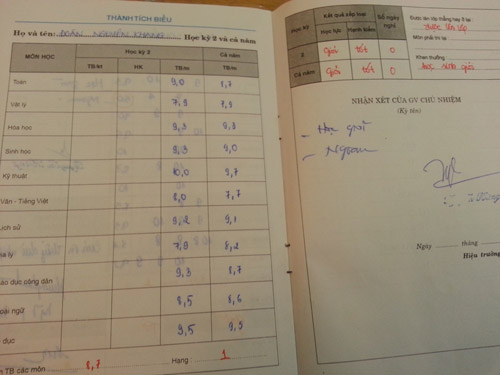 THÀNH TÍCH BIỂU
Họ và tên: ĐOÀN NGUYÊN KHANG Học kỳ 2 và cả năm
MÔN HỌC Học kỳ 2 Cả năm
TBKT HK TBm TBm
Toán 9,0 8,7
Vật lý 7,9 7,9
Hóa học 9,3 9,3
Sinh học 9,3 9,0
Kỹ thuật 10,0 9,7
Văn - Tiếng Việt 8,0 7,7
Lịch sử 9,2 9,1
Địa lý 7,9 8,2
áo dục công dân 9,3 8,7
oại ngữ 8,5 8,6
dục 9,5 9,5
TB các môn 8,7 Hạng 1
Học kỳ Kết quả xếp loại Số ngày nghỉ
Học lực Hạnh kiểm
2 giỏi tốt 0
Cả năm giỏi tốt 0
Được lên lớp thẳng hay ở lại :
được lên lớp
Môn phải thi lại
Khen thưởng
học sinh giỏi
NHẬN XÉT CỦA GV CHỦ NHIỆM
(Ký tên)
- Học giỏi
- Ngoan
Ngày tháng
Hiệu trưởng